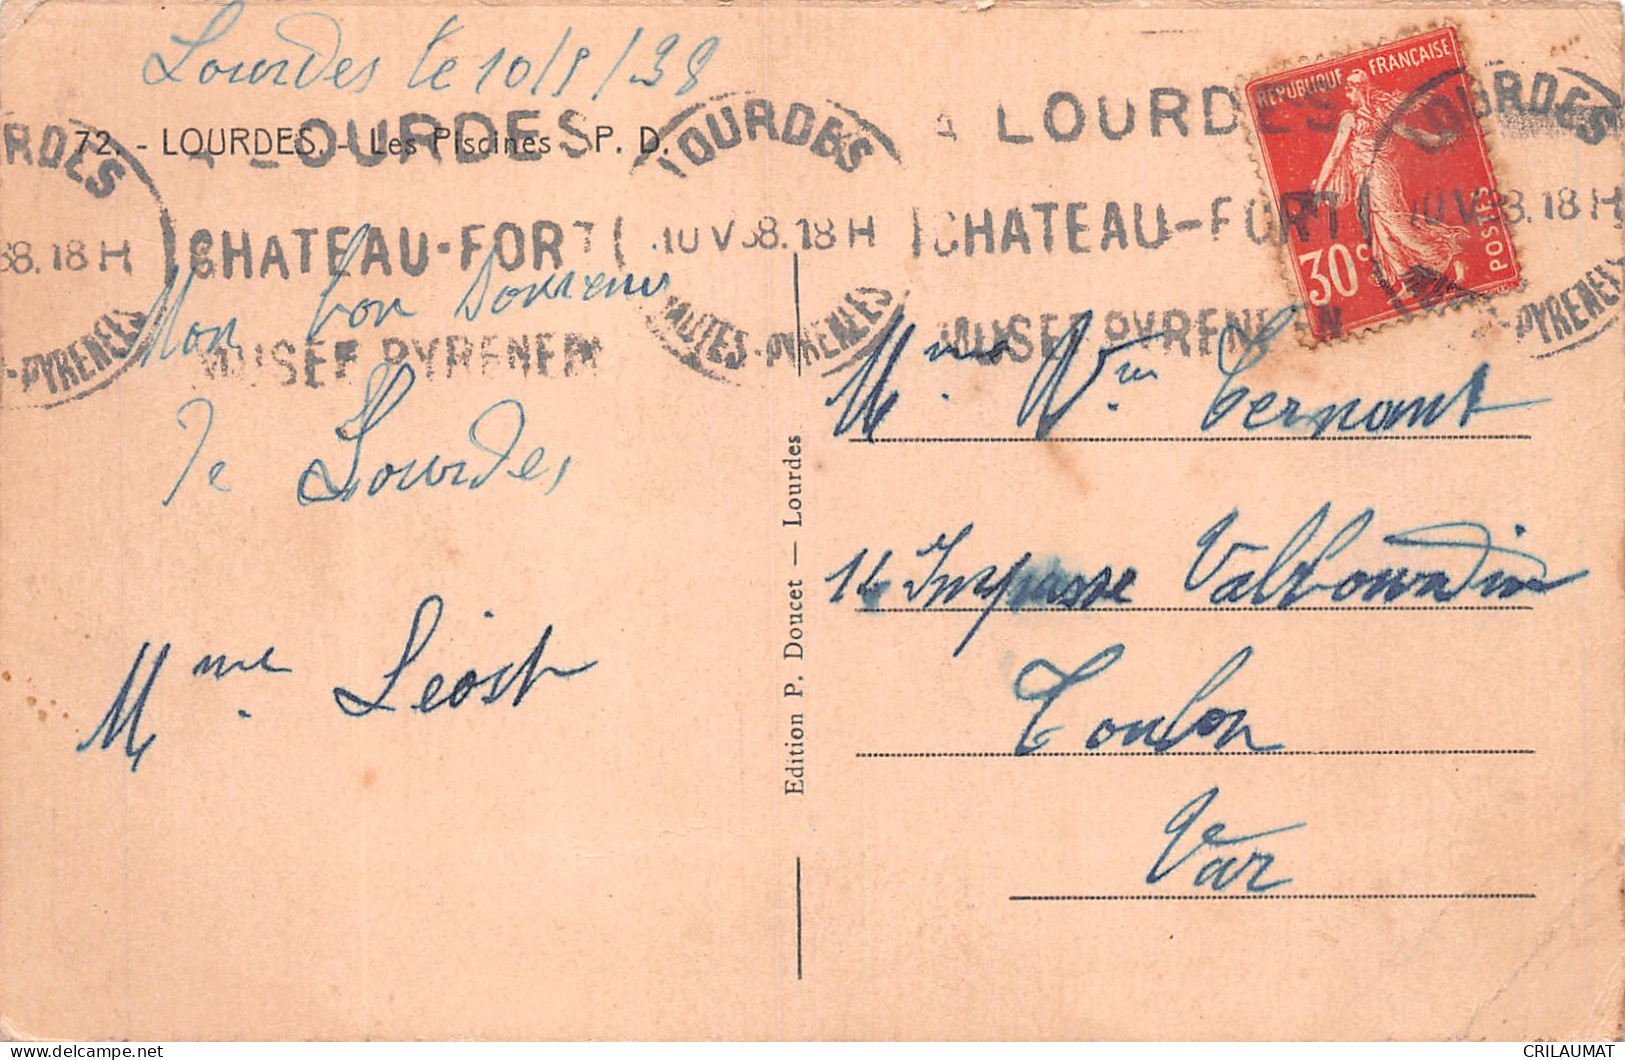 Lourdes le 10/5/38
72. - LOURDES. - Les Piscines P. D.
Mon bon souvenir
de Lourdes
Mme
Edition P. Doucet — Lourdes
RÉPUBLIQUE FRANÇAISE
POSTES
30c
LOURDES
10 V 38. 18 H
HAUTES-PYRENEES
A LOURDES
CHATEAU-FORT
MUSEE PYRENEEN
LOURDES
10 V 38. 18 H
-PYRENEES
A LOURDES
CHATEAU-FORT
MUSEE PYRENEEN
RDES
38. 18 H
-PYRENEES
Mme Vve
14 Impasse Valbourdin
Toulon
Var
CRILAUMAT